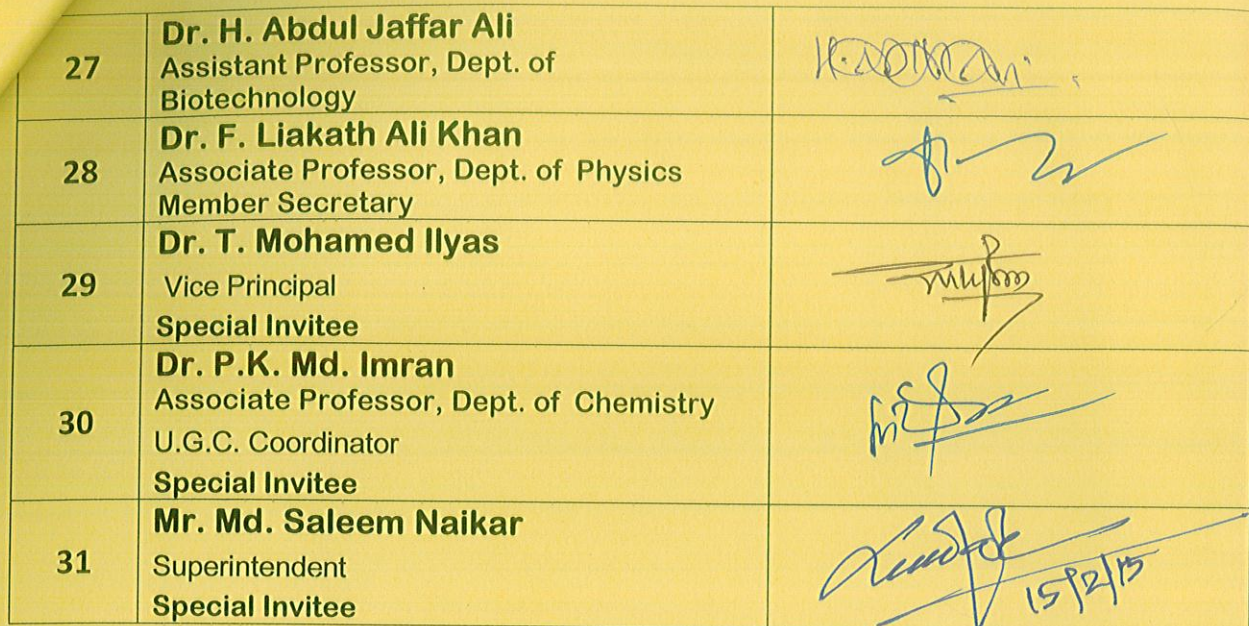 27
Dr. H. Abdul Jaffar Ali
Assistant Professor, Dept. of
Biotechnology
28
Dr. F. Liakath Ali Khan
Associate Professor, Dept. of Physics
Member Secretary
29
Dr. T. Mohamed Ilyas
Vice Principal
Special Invitee
30
Dr. P.K. Md. Imran
Associate Professor, Dept. of Chemistry
U.G.C. Coordinator
Special Invitee
31
Mr. Md. Saleem Naikar
Superintendent
Special Invitee
15/2/15